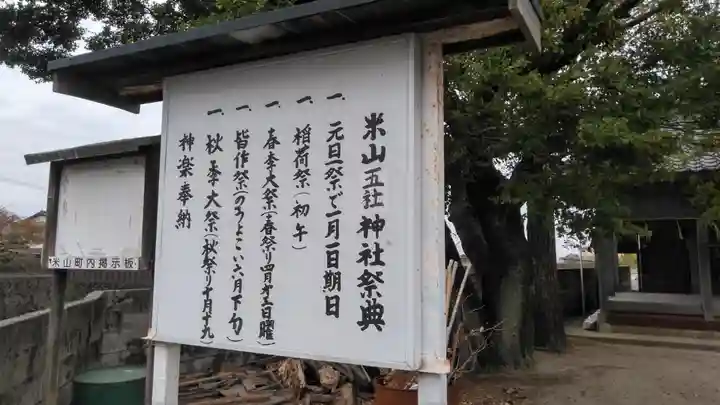 米山五社神社祭典
一、元旦祭で一月一日期日
一、稲荷祭(初午)
一、春季大祭(春祭り四月第二日曜)
一、皆作祭(のうよこい六月下旬)
一、秋季大祭(秋祭り十月十九
神楽奉納
米山町内掲示板